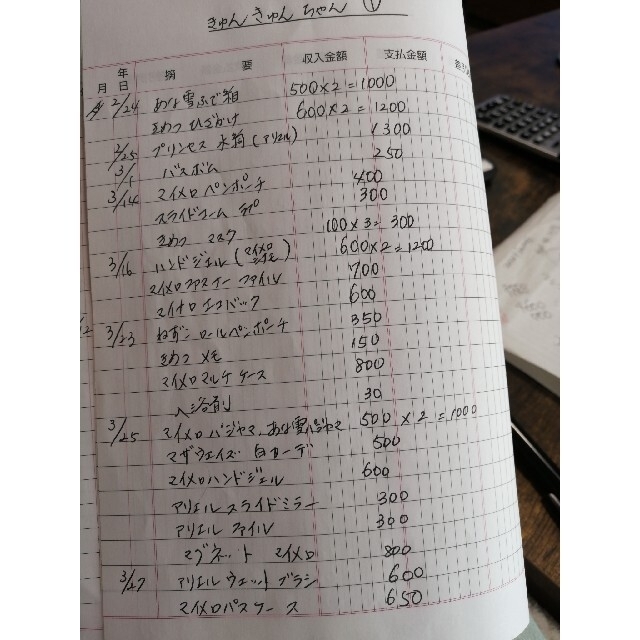 きゅんきゅんちゃん ①
年 月 日 摘 要 収入金額 支払金額
2/24 あな雪ふで箱 500×2=1000
きめつ ひざかけ 600×2=1200
2/25 プリンセス 水筒(アリエル) 1300
3/1 バスボム 250
3/14 マイメロペンポーチ 400
スライドゴーム 300
きめつ マスク 100×3=300
3/16 ハンドジェル(マイメロ 600×2=1200
マイメロファスナーファイル 700
マイメロエコバック 600
3/23 ねずこロールペンポーチ 350
きめつ メモ 150
マイメロマルチケース 800
入浴剤 30
3/25 マイメロパジャマ、あな雪パジャマ 500×2=1000
マザウェイズ 白カーデ 500
マイメロハンドジェル 600
アリエルスライドミラー 300
アリエルファイル 300
マグネット マイメロ 800
3/27 アリエルウェットブラシ 600
マイメロパスケース 650